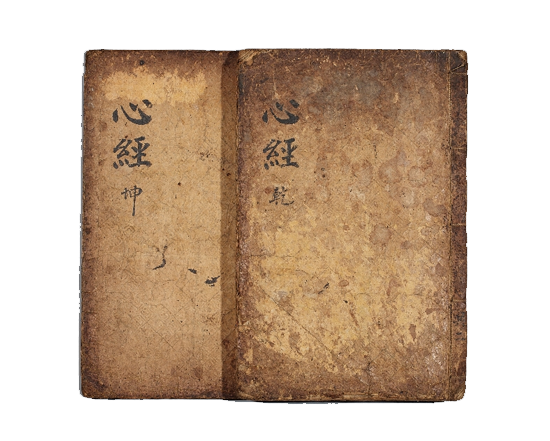 心經
乾
心經
坤